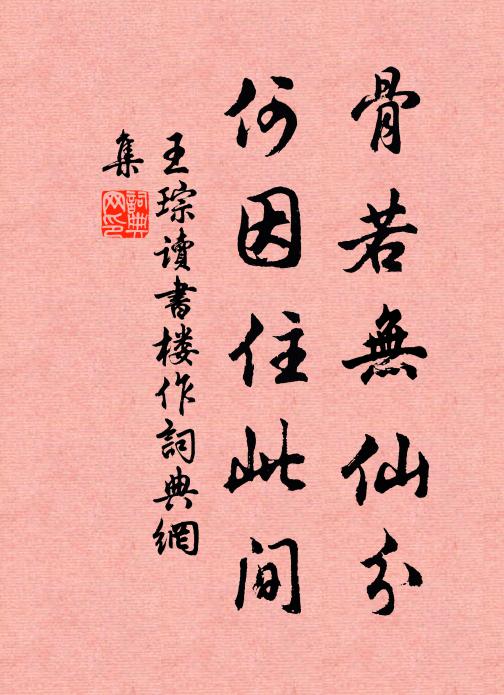 骨若無仙分
何因住此間
王琮讀書楼作詞典網
集
詞典網印